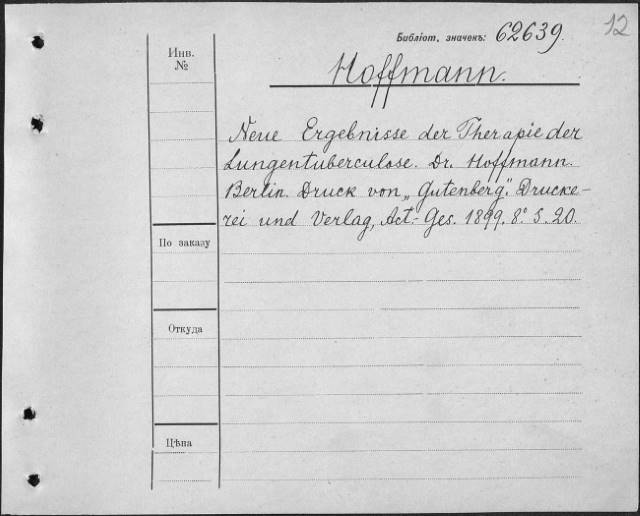 12
Библіот. значекъ: 62639.
Инв.
№
Hoffmann.
Neue Ergebnisse der Therapie der
Lungentuberculose. Dr. Hoffmann.
Berlin. Druck von „Gutenberg". Drucke-
rei und Verlag, Act.-Ges. 1899. 8° S. 20.
По заказу
Откуда
Цѣна